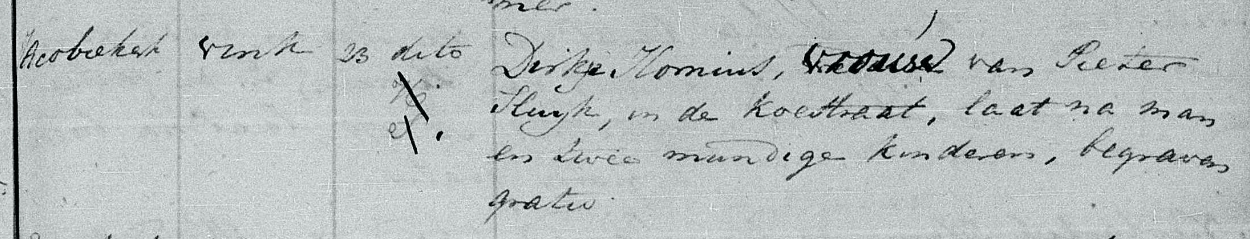 Jacobikerk vink 23 dito Dirkje Homius, vrouw van Pieter
Kluyk, in de Koestraat, laat na man
en twee mundige kinderen, begraven
gratis